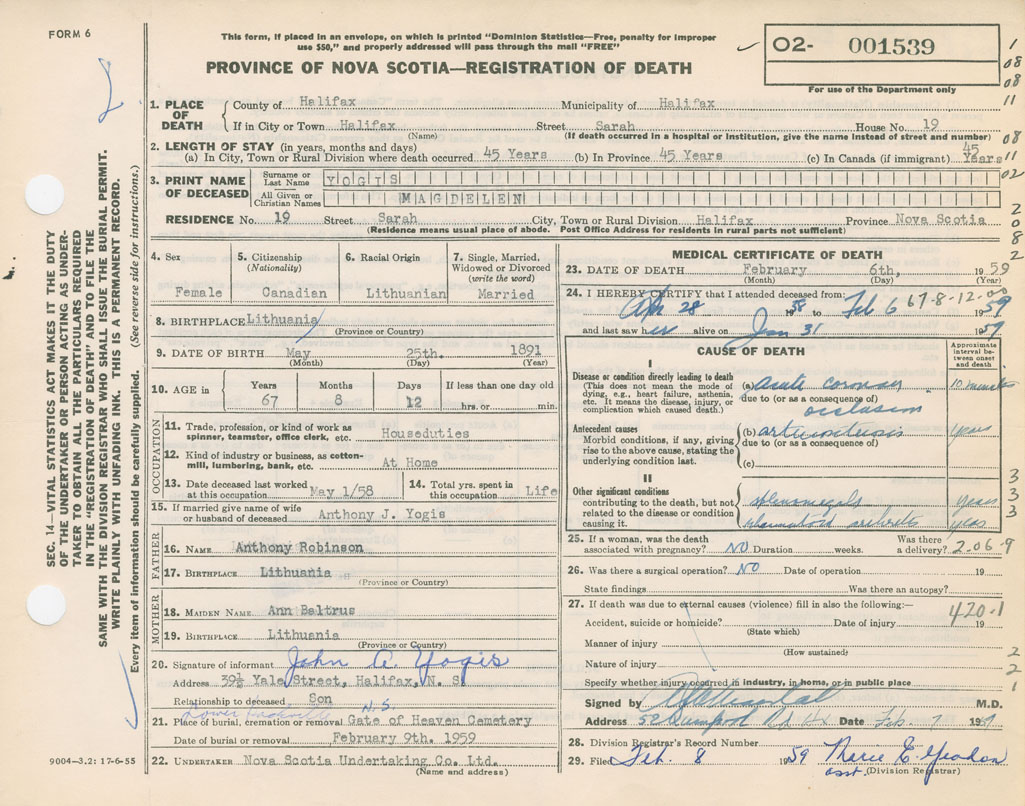 FORM 6
This form, if placed in an envelope, on which is printed "Dominion Statistics—Free, penalty for improper
use $50," and properly addressed will pass through the mail "FREE"
O2- 001539
For use of the Department only
PROVINCE OF NOVA SCOTIA—REGISTRATION OF DEATH
1
08
08
11
08
11
02
2
0
8
2
SEC. 14—VITAL STATISTICS ACT MAKES IT THE DUTY
OF THE UNDERTAKER OR PERSON ACTING AS UNDER-
TAKER TO OBTAIN ALL THE PARTICULARS REQUIRED
IN THE "REGISTRATION OF DEATH" AND TO FILE THE
SAME WITH THE DIVISION REGISTRAR WHO SHALL ISSUE THE BURIAL PERMIT.
WRITE PLAINLY WITH UNFADING INK. THIS IS A PERMANENT RECORD.
Every item of information should be carefully supplied. (See reverse side for instructions.)
1. PLACE OF DEATH
County of Halifax Municipality of Halifax
If in City or Town Halifax Street Sarah House No. 19
(Name) (If death occurred in a hospital or institution, give the name instead of street and number)
2. LENGTH OF STAY (in years, months and days)
(a) In City, Town or Rural Division where death occurred 45 Years (b) In Province 45 Years (c) In Canada (if immigrant) 45 Years
3. PRINT NAME OF DECEASED
Surname or Last Name YOGIS
All Given or Christian Names MAGDELEN
RESIDENCE No. 19 Street Sarah City, Town or Rural Division Halifax Province Nova Scotia
(Residence means usual place of abode. Post Office Address for residents in rural parts not sufficient)
4. Sex
Female
5. Citizenship
(Nationality)
Canadian
6. Racial Origin
Lithuanian
7. Single, Married,
Widowed or Divorced
(write the word)
Married
8. BIRTHPLACE Lithuania
(Province or Country)
9. DATE OF BIRTH May 25th. 1891
(Month) (Day) (Year)
10. AGE in
Years Months Days If less than one day old
67 8 12 hrs. or min.
OCCUPATION
11. Trade, profession, or kind of work as
spinner, teamster, office clerk, etc. Houseduties
12. Kind of industry or business, as cotton-
mill, lumbering, bank, etc. At Home
13. Date deceased last worked
at this occupation May 1/58
14. Total yrs. spent in
this occupation Life
15. If married give name of wife
or husband of deceased Anthony J. Yogis
FATHER
16. NAME Anthony Robinson
17. BIRTHPLACE Lithuania
(Province or Country)
MOTHER
18. MAIDEN NAME Ann Baltrus
19. BIRTHPLACE Lithuania
(Province or Country)
20. Signature of informant John A. Yogis
Address 39½ Yale Street, Halifax, N. S.
Relationship to deceased Son
Lower Sackville N.S.
21. Place of burial, cremation or removal Gate of Heaven Cemetery
Date of burial or removal February 9th. 1959
22. UNDERTAKER Nova Scotia Undertaking Co. Ltd.
(Name and address)
9004—3.2: 17-6-55
MEDICAL CERTIFICATE OF DEATH
23. DATE OF DEATH February 6th, 1959
(Month) (Day) (Year)
67-8-12-00
24. I HEREBY CERTIFY that I attended deceased from:
Apr 28 1958 to Feb 6 1959
and last saw her alive on Jan 31 1959
CAUSE OF DEATH
Approximate
interval be-
tween onset
and death
I
Disease or condition directly leading to death
(This does not mean the mode of
dying, e.g., heart failure, asthenia,
etc. It means the disease, injury, or
complication which caused death.)
(a) acute coronary 10 minutes
due to (or as a consequence of)
occlusion
Antecedent causes
Morbid conditions, if any, giving
rise to the above cause, stating the
underlying condition last.
(b) arteriosclerosis years
due to (or as a consequence of)
(c)
II
Other significant conditions
contributing to the death, but not
related to the disease or condition
causing it.
splenomegaly years
rheumatoid arthritis years
3
3
3
25. If a woman, was the death
associated with pregnancy? NO Duration weeks. Was there
a delivery? 2.06-9
26. Was there a surgical operation? NO Date of operation 19
State findings Was there an autopsy?
27. If death was due to external causes (violence) fill in also the following:—
420-1
Accident, suicide or homicide? Date of injury 19
(State which)
Manner of injury
(How sustained)
Nature of injury
Specify whether injury occurred in industry, in home, or in public place
2
2
1
Signed by M.D.
Address 52 Rd Hx Date Feb. 7 1959
28. Division Registrar's Record Number
29. Filed Feb. 8 1959 Marie E.
asst. (Division Registrar)